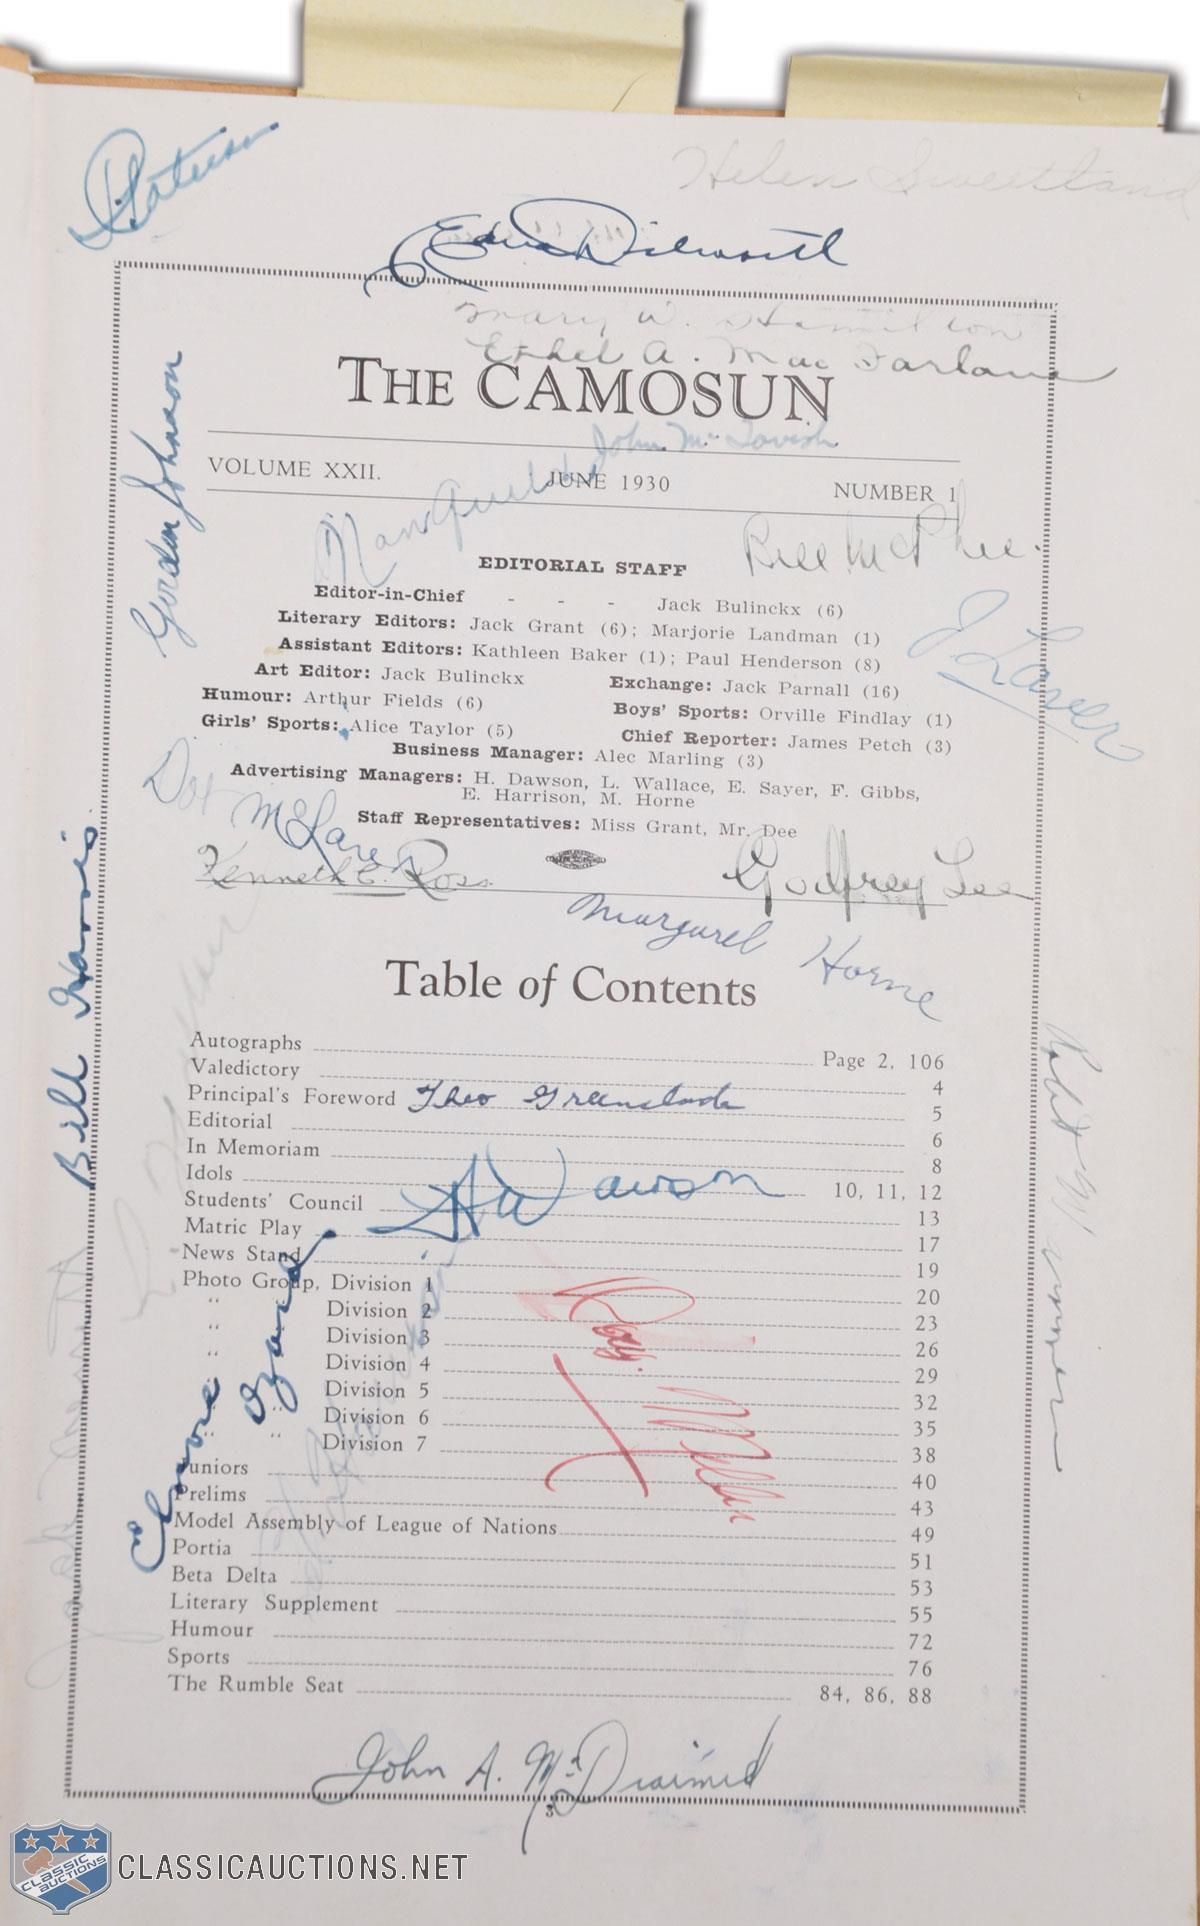 Helen Sweetland
Edwin Dilworth
Mary W. Hamilton
Ethel A. MacFarlane
THE CAMOSUN
John McTavish
VOLUME XXII. JUNE 1930 NUMBER 1
Nan Guild
Bill McPhee.
Gordon Johnson
EDITORIAL STAFF
Editor-in-Chief - - - Jack Bulinckx (6)
Literary Editors: Jack Grant (6); Marjorie Landman (1)
Assistant Editors: Kathleen Baker (1); Paul Henderson (8)
Art Editor: Jack Bulinckx Exchange: Jack Parnall (16)
Humour: Arthur Fields (6) Boys' Sports: Orville Findlay (1)
Girls' Sports: Alice Taylor (5) Chief Reporter: James Petch (3)
Business Manager: Alec Marling (3)
Advertising Managers: H. Dawson, L. Wallace, E. Sayer, F. Gibbs,
E. Harrison, M. Horne
Staff Representatives: Miss Grant, Mr. Dee
Dot McLaren
Kenneth E. Ross
Godfrey Lee
Margaret Horne
Bill Harris.
Table of Contents
Autographs Page 2, 106
Valedictory 4
Principal's Foreword 5
Theo Greenslade
Editorial 6
In Memoriam 8
Idols 10, 11, 12
Students' Council 13
H Dawson
Matric Play 17
News Stand 19
Photo Group, Division 1 20
" " Division 2 23
" " Division 3 26
" " Division 4 29
" " Division 5 32
" " Division 6 35
" " Division 7 38
Elmore Ozard
Juniors 40
Prelims 43
Model Assembly of League of Nations 49
Portia 51
Beta Delta 53
Literary Supplement 55
Humour 72
Sports 76
The Rumble Seat 84, 86, 88
John A. McDiarmid
3
CLASSIC AUCTIONS
CLASSICAUCTIONS.NET